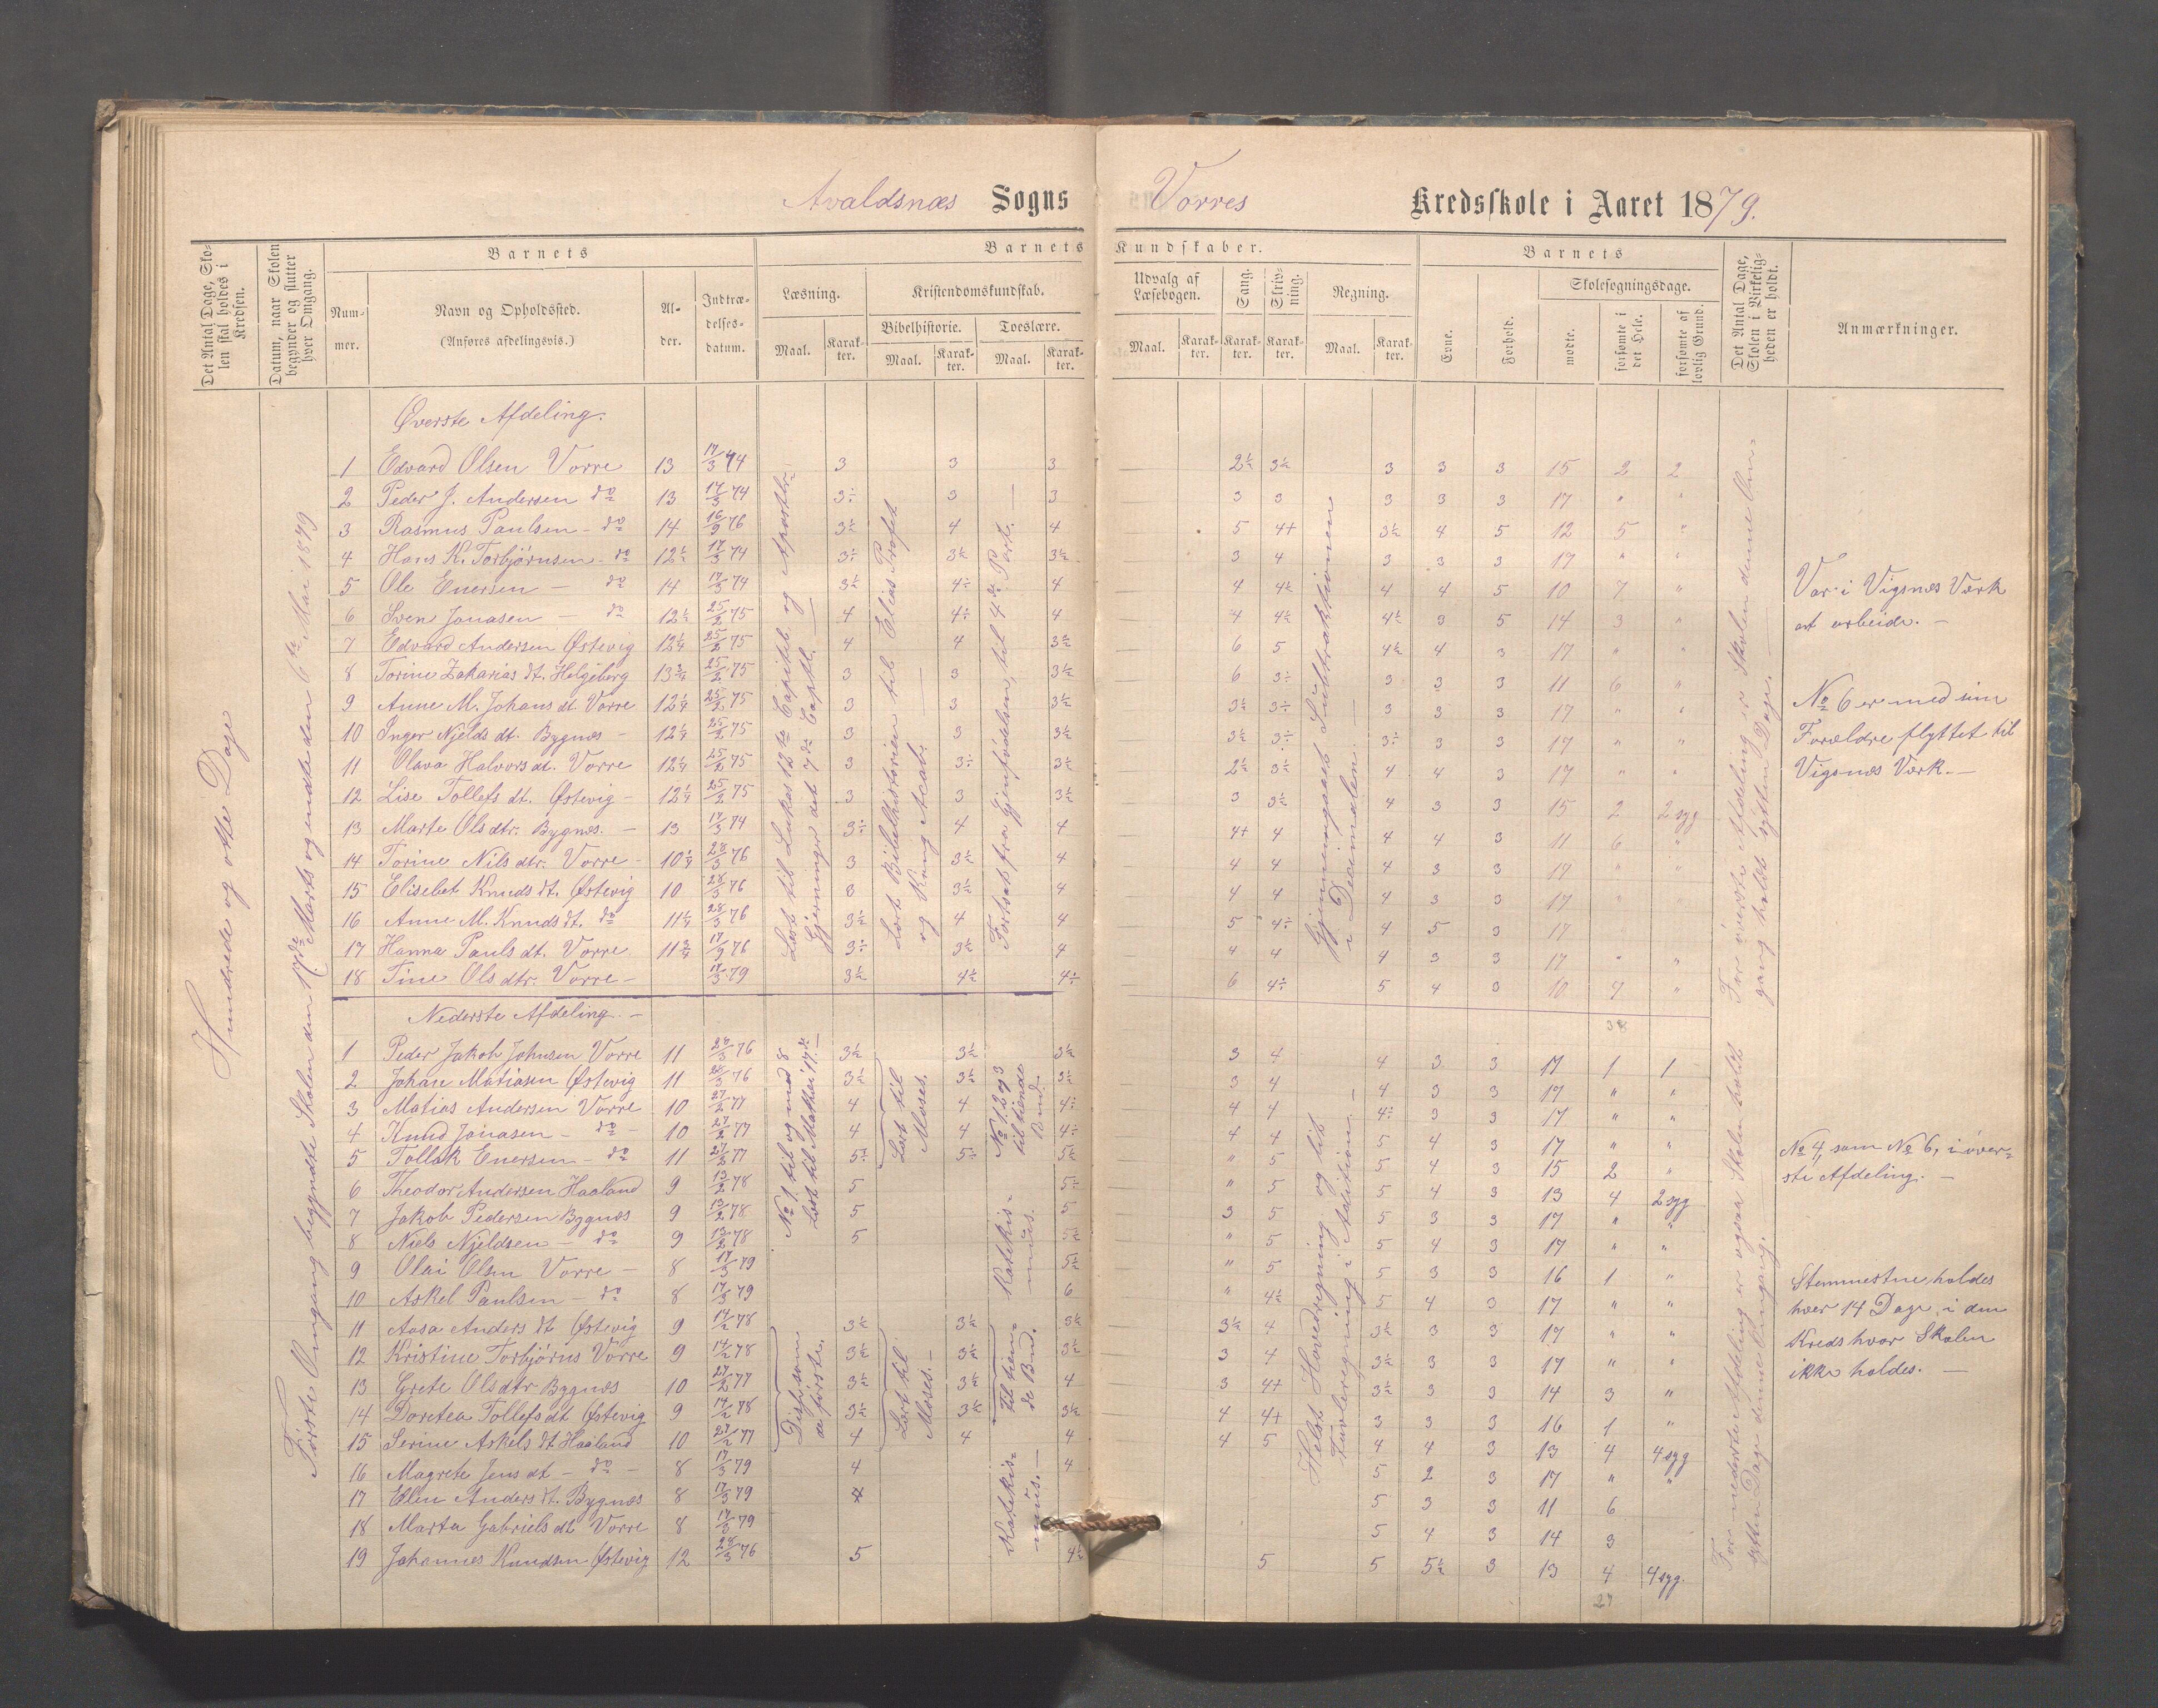 Avaldsnæs Sogns
Vorres Kredsskole i Aaret 1879.
Det Antal Dage, Skolen skal holdes i Kredsen.
Datum, naar Skolen begynder og slutter hver Omgang.
Barnets
Barnets
Kundskaber.
Barnets
Det Antal Dage, Skolen i Virkeligheden er holdt.
Anmærkninger.
Nummer.
Navn og Opholdssted.
(Anføres afdelingsvis.)
Alder.
Indtrædelsesdatum.
Læsning.
Kristendomskundskab.
Bibelhistorie.
Troeslære.
Maal.
Karakter.
Maal.
Karakter.
Maal.
Karakter.
Udvalg af Læsebogen.
Sang.
Skrivning.
Regning.
Maal.
Karakter.
Karakter.
Karakter.
Maal.
Karakter.
Evne.
Forhold.
Skolesøgningsdage.
mødte.
forsømte i det Hele.
forsømte af lovlig Grund.
Hundrede og otte Dage
Første Omgang begyndte Skolen den 17de Marts og endte den 6te Mai 1879
Øverste Afdeling.
1 Edvard Olsen Vorre 13 17/3 74 3 3 3 2½ 3½ 3 3 3 15 2 2
2 Peder J. Andersen do 13 17/3 74 3÷ 3 3 3 3 3 3 3 17 " "
3 Rasmus Paulsen - do 14 16/9 76 3½ 4 4 5 4+ 3½ 4 5 12 5 "
4 Hans K. Torbjørnsen - do 12½ 17/3 74 3÷ 3½ 3½ 3 4 3 3 3 17 " "
5 Ole Enersen - do 14 17/3 74 3½ 4÷ 4 4 4½ 4 4 5 10 7 "
6 Sven Jonasen - do 12½ 25/2 75 4 4÷ 4 4 4½ 4½ 3 5 14 3 "
7 Edvard Andersen Østevig 12¼ 25/2 75 4 4 3½ 6 5 4½ 4 3 17 " "
8 Torine Zakarias dt. Helgeberg 13¾ 25/2 75 3 3 3½ 6 3÷ 3 3 3 11 6 "
9 Anne M. Johans dt. Vorre 12¼ 25/2 75 3 3 3½ 3½ 3÷ 3 3 3 17 " "
10 Inger Njelds dt. Bygnes - 12¼ 25/2 75 3 3 3½ 3½ 3÷ 3÷ 3 3 17 " "
11 Olava Halvors dt. Vorre 12¼ 25/2 75 3 3÷ 3½ 2½ 3½ 4 4 3 17 " "
12 Lise Tollefs dt. Østevig - 12¼ 25/2 75 3 3 3½ 3 3½ 4 3 3 15 2 2 syg
13 Marte Ols dtr. Bygnes. - 13 17/3 74 3÷ 4 4 4+ 4 4 4 3 11 6 "
14 Torine Nils dtr. Vorre - 10¼ 28/3 76 3 3½ 4 4 4 4 3 3 17 " "
15 Elisebet Knuds dt. Østevig 10 28/3 76 3 3½ 4 4 4 4 3 3 17 "
16 Anne M. Knuds dt. do 11¼ 28/3 76 3½ 4 4 5 4÷ 4 5 3 17
17 Hanna Pauls dt. Vorre 11¾ 17/9 76 3÷ 3½ 4 4 4 4 3 3 17 " "
18 Tine Ols dtr. Vorre - 17/3 79 3½ 4½ 4÷ 6 4÷ 5 4 3 10 7 "
Læst til Lukas 12te Capitel og Apostlernes Gjerninger det 7de Captl.
Lært Bibelhistorien til Elias Profet og Kong Acab.
Fortsat fra Gjenfødelsen, til 4de Part. -
Gjennemgaaet Subtraktionen i Decimalen. -
For øverste Afdeling er Skolen denne Omgang holdt sytten Dage. -
Var i Vigsnæs Værk
at arbeide. -
No 6 er med sine
Forældre flyttet til
Vigsnæs Værk. -
38
Nederste Afdeling. -
1 Peder Jakob Johnsen Vorre 11 28/3 76 3½ 3½ 3½ 3 4 4 3 3 17 1 1
2 Johan Matiasen Østevig 11 28/3 76 3½ 3½ 3½ 3 4 4 3 3 17 " "
3 Matias Andersen Vorre 10 27/2 77 4 4 4÷ 4 4 4÷ 3 3 17 " "
4 Knud Jonasen - do - 10 27/2 77 4 4 4÷ 4 4 5 4 3 17 " "
5 Tollak Enersen - do 11 27/2 77 5÷ 5÷ 5½ " 5 5 4 3 15 2 "
6 Theodor Andersen Haaland 9 13/2 78 5 5÷ " 5 5 4 3 13 4 2 syg
7 Jakob Pedersen Bygnæs 9 13/2 78 5 5 3 5 5 3 3 17 " "
8 Niels Njeldsen - do 9 13/2 78 5 5½ " 5 5 4 3 17 " "
9 Olai Olsen Vorre - 8 17/3 79 5½ " 5 5 3 3 16 1 "
10 Askel Paulsen - do 8 17/3 79 6 " 4½ 5 4 3 17 " "
11 Aasa Anders dt Østevig 9 14/2 78 3½ 3½ 3½ 3½ 4 3½ 3 3 17 " "
12 Kristine Torbjørns Vorre 9 14/2 78 3½ 3½ 3½ 3 4 3½ 3 3 17 " "
13 Grete Ols dtr Bygnæs 10 27/2 77 3½ 3½ 4 3 4+ 3½ 3 3 14 3 "
14 Doretea Tollefs dt Østevig 9 14/2 78 3½ 3½ 3½ 4 4+ 3 3 3 16 1 "
15 Serine Askels dt. Haaland 10 27/2 77 4 4 4 4 5 4 4 3 13 4 4 syg
16 Magrete Jens dt - do - 8 17/3 79 4 4 5 2 3 17 " "
17 Elen Anders dt. Bygnæs 8 17/3 79 5 3 3 11 6
18 Marta Gabriels dt Vorre 8 17/3 79 5 4 3 14 3
19 Johannes Knudsen Østevig 12 28/3 76 5 4½ 5 5 5½ 3 13 4 4 syg.
27
No 1 til og med 8 læst til Matheus 17de -
Disse som de første.
Lært til Moses.
Lært til Moses. -
No 1, 2 og 3 til tiende Bud.
Katekismus.
til tiende Bud.
Katekismus. -
Helst Hovedregning og lidt Tavleregning i Addition. -
For nederste Afdeling er ogsaa Skolen holdt sytten Dage denne Omgang.
No 4 som No 6, i øverste
Afdeling. -
Stemmestue holdes
hver 14 Dage, i den
Kreds hvor Skolen
ikke holdes. -